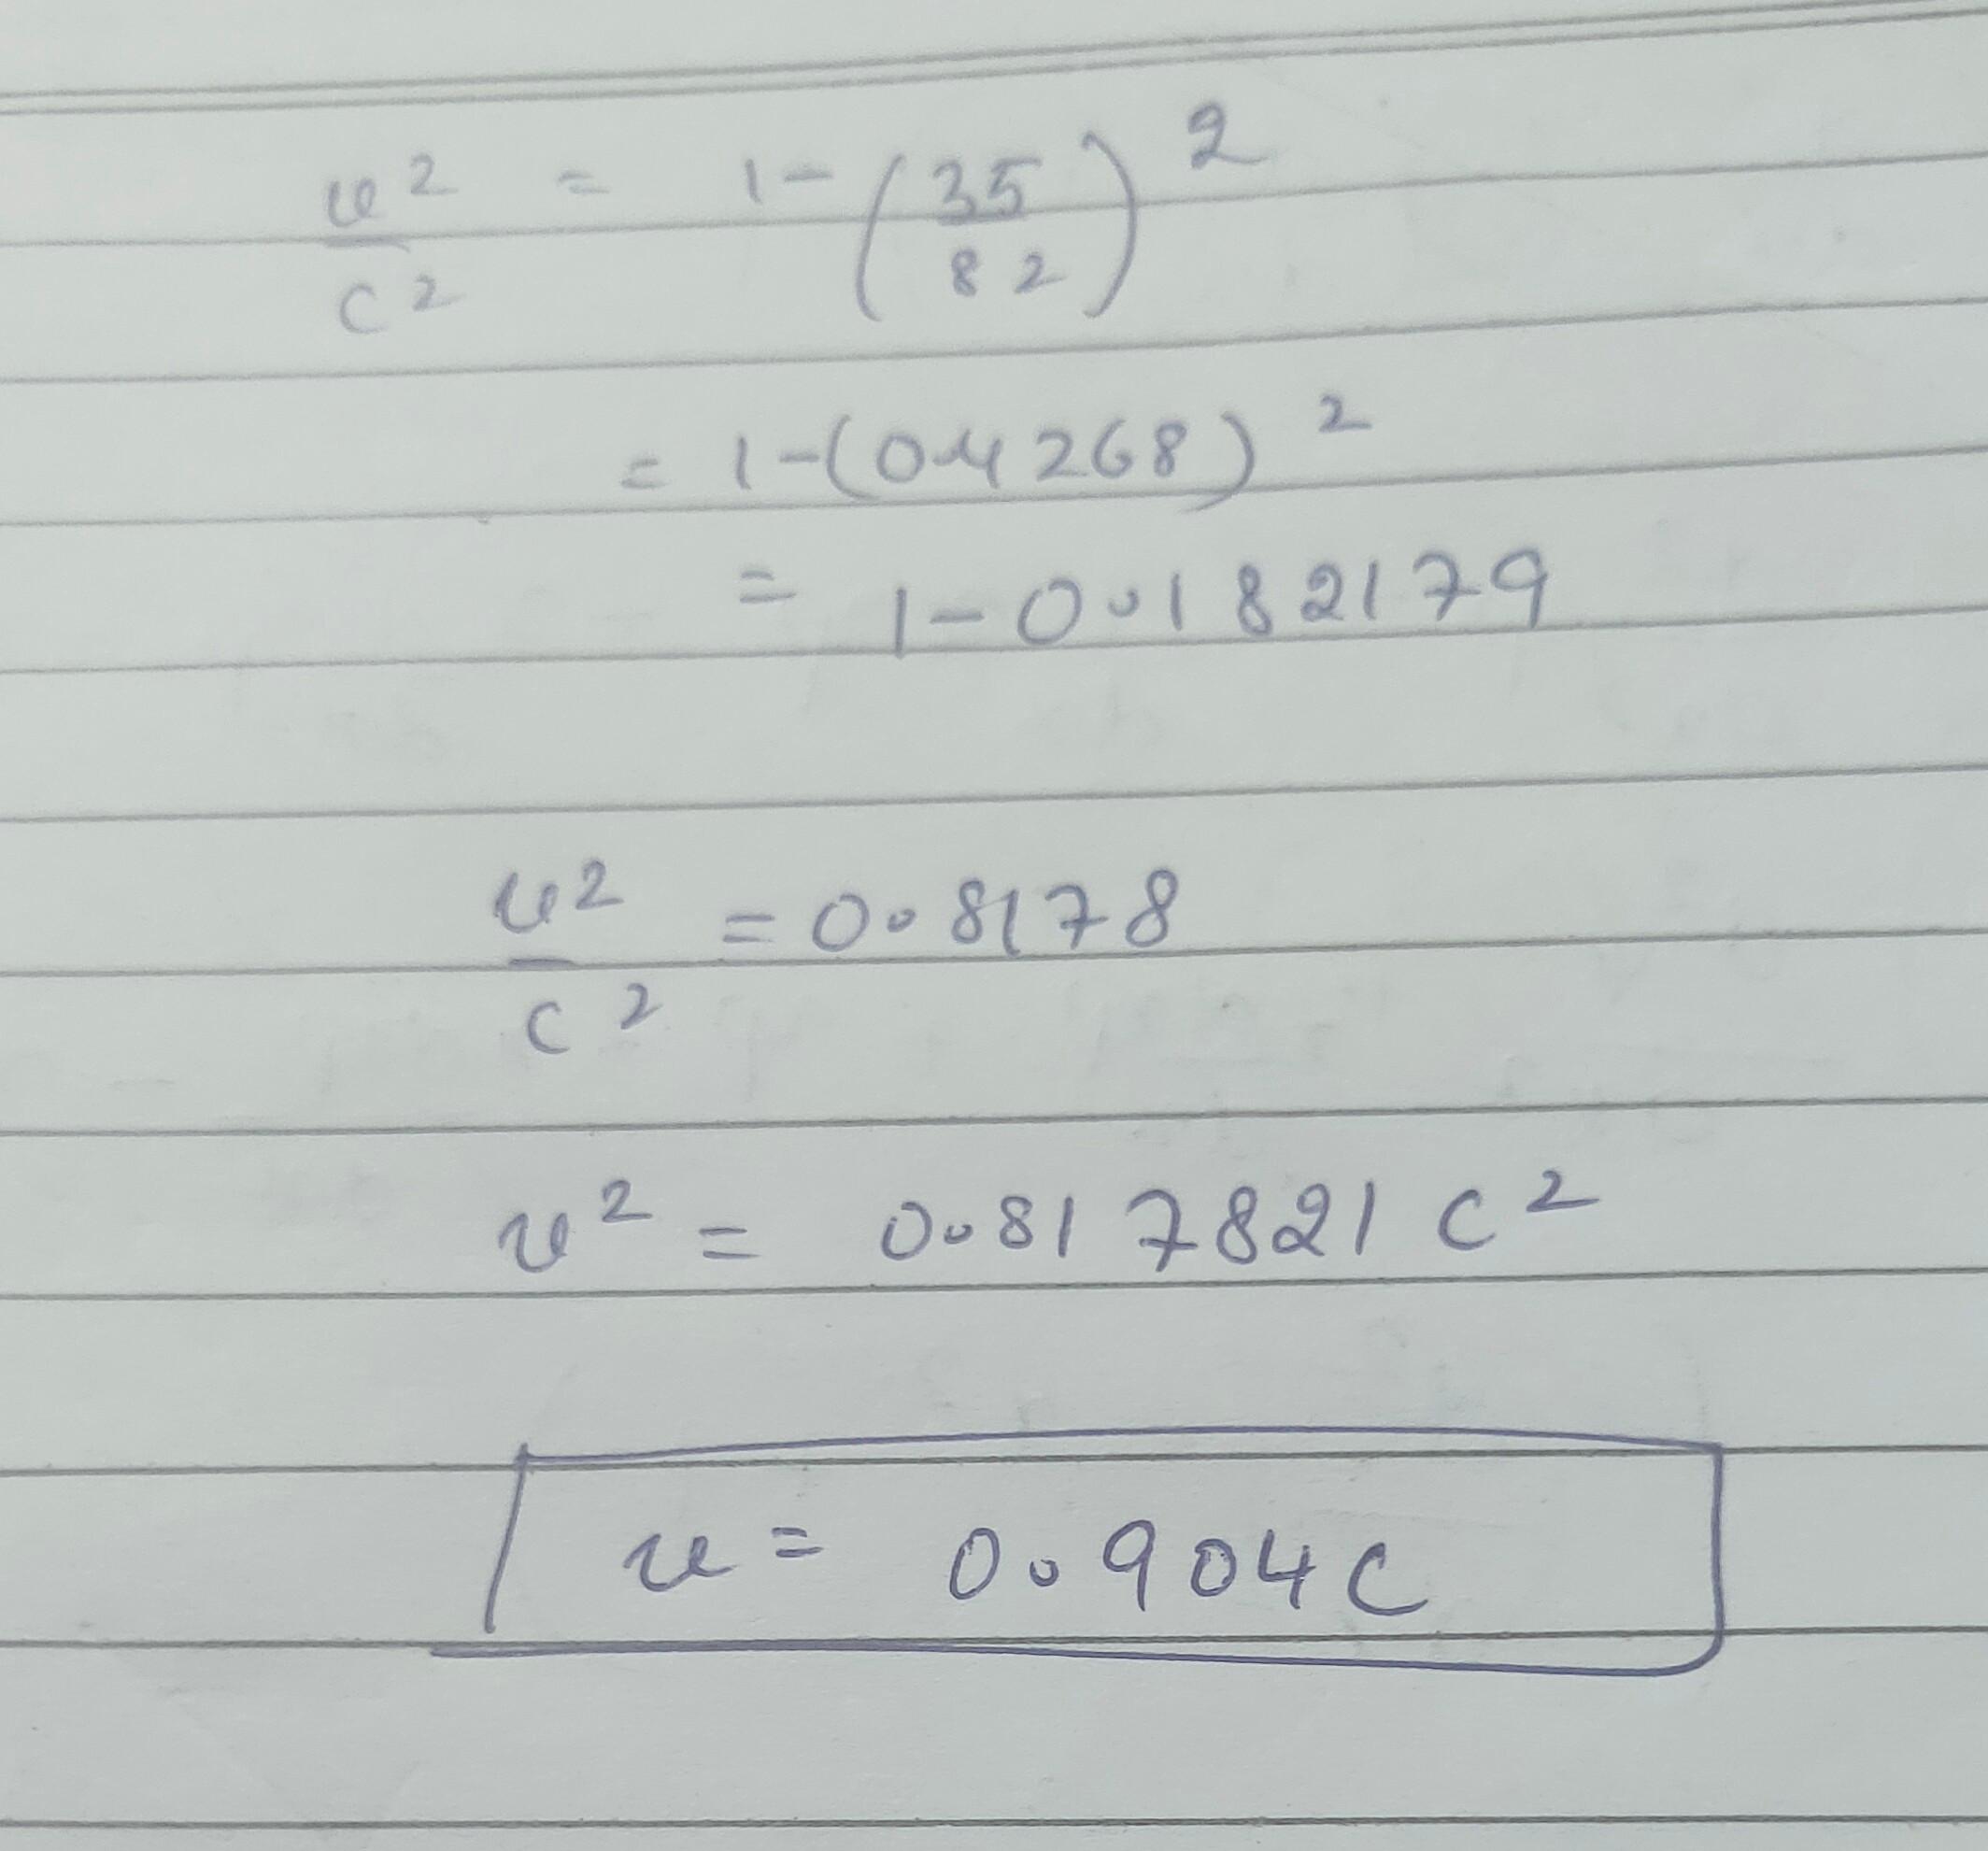 u²/c² = 1-(35/82)²
= 1-(0.4268)²
= 1-0.182179
u²/c² = 0.8178
u² = 0.817821 c²
u = 0.904c